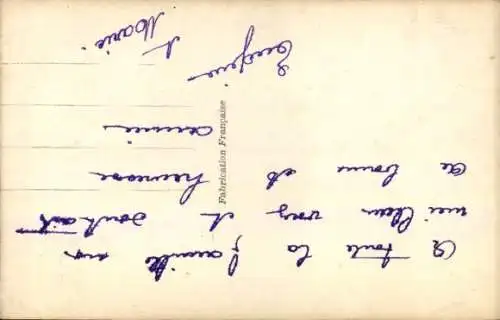 A toute la famille nos
meilleurs vœux et souhait
de bonne et heureuse
année
Eugène
et Marie
Fabrication Française